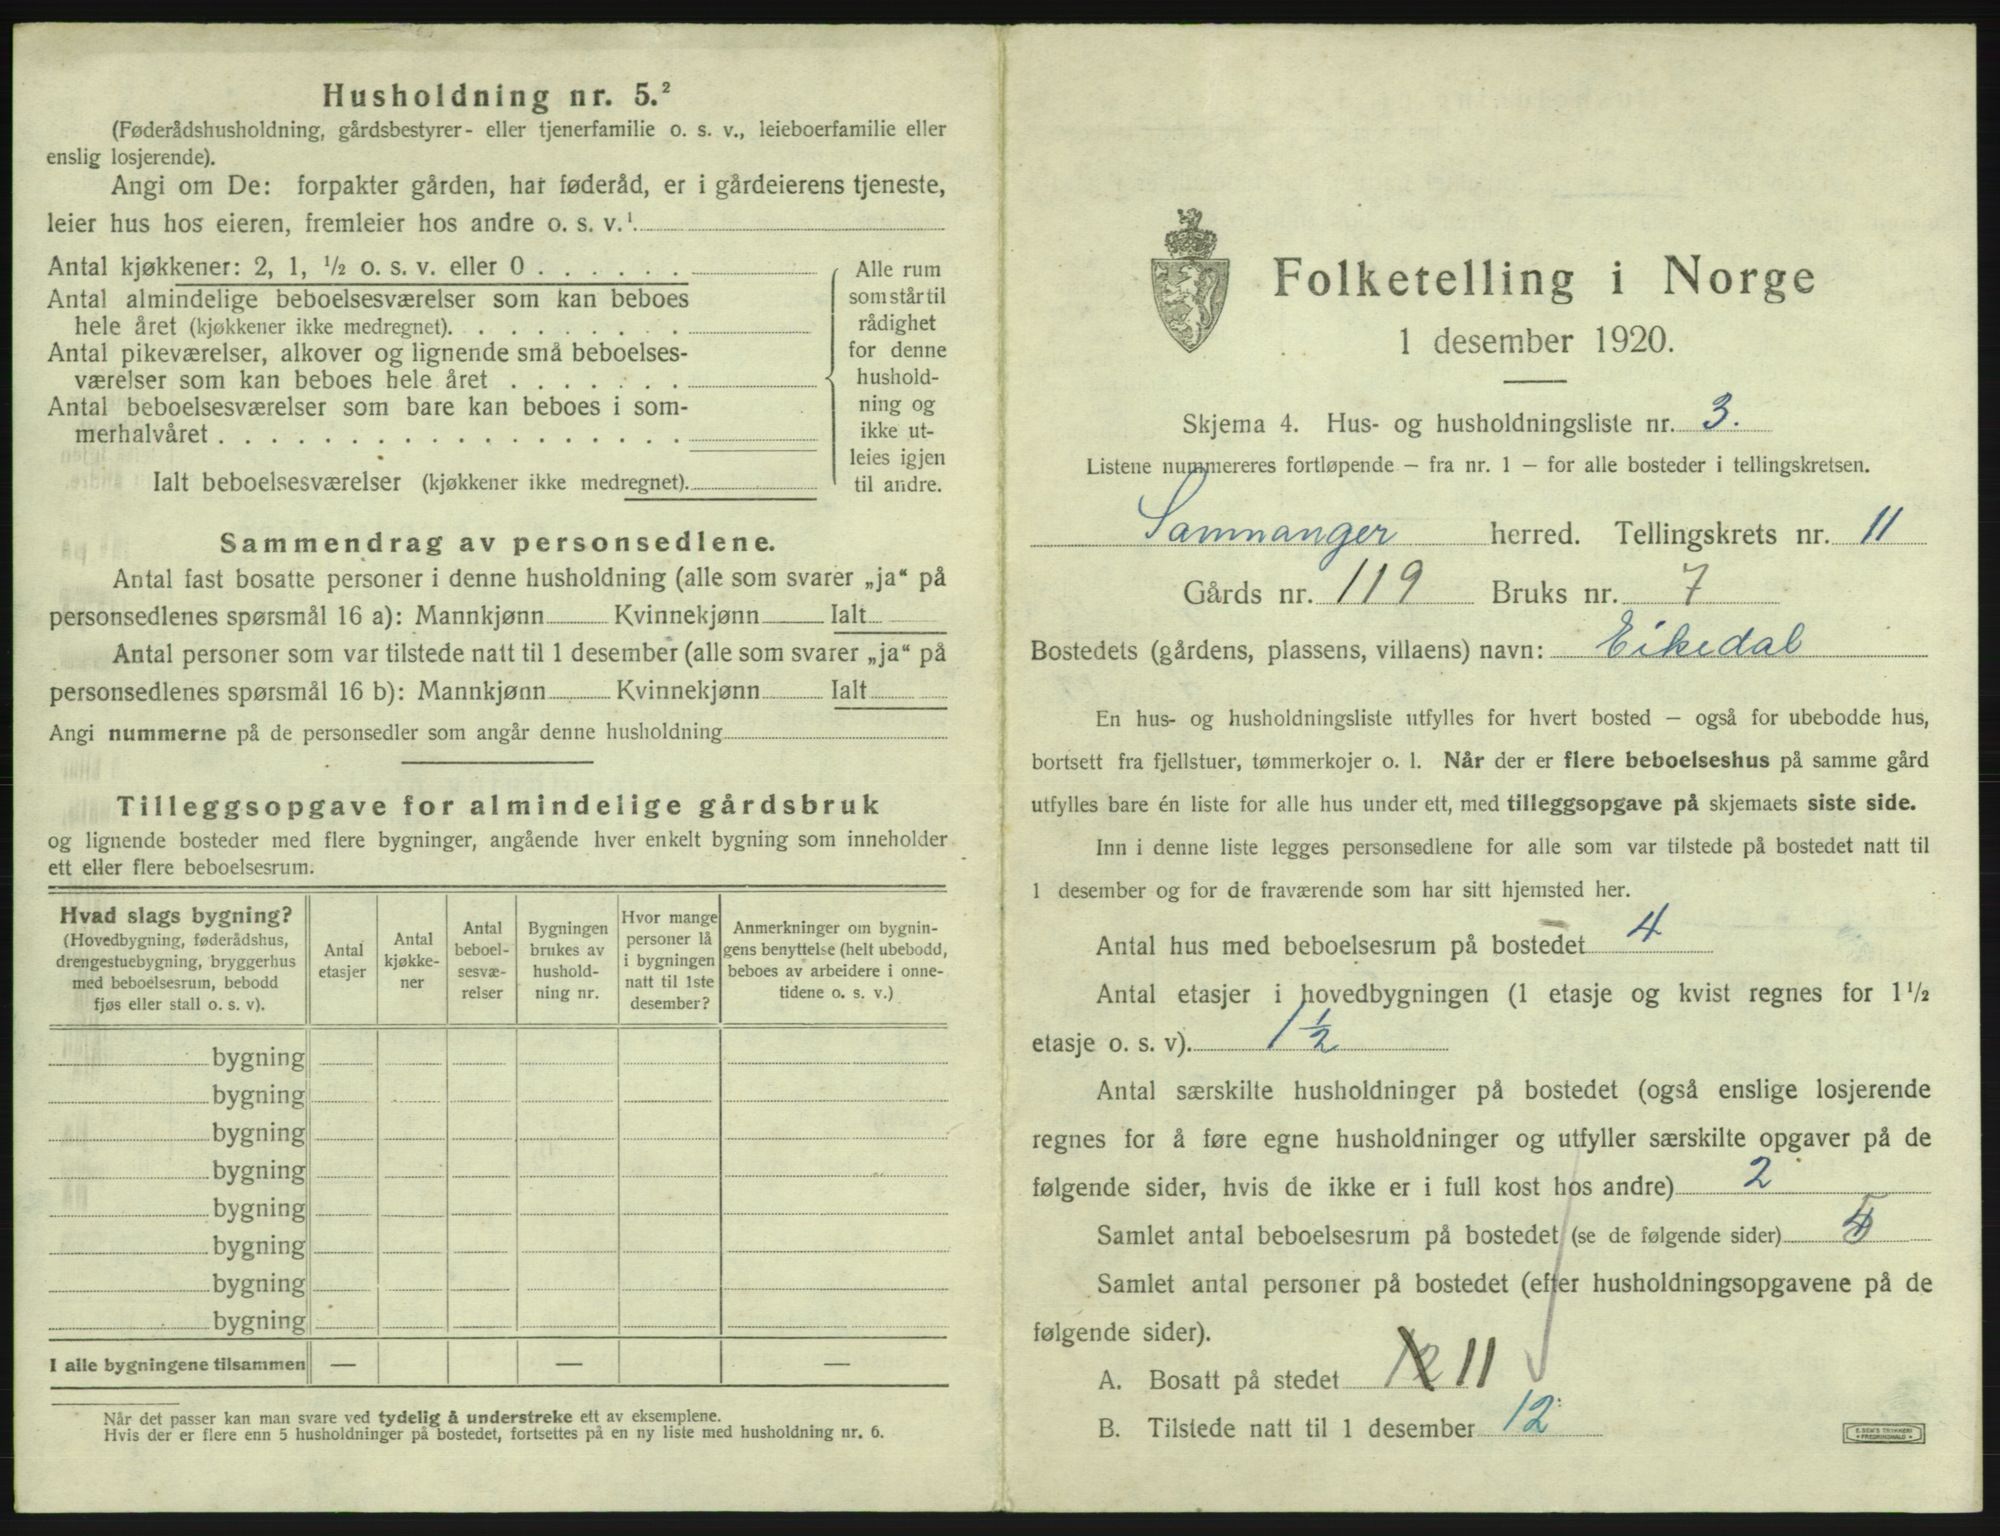 Husholdning nr. 5.²
(Føderådshusholdning, gårdsbestyrer- eller tjenerfamilie o. s. v., leieboerfamilie eller
enslig losjerende).
Angi om De: forpakter gården, har føderåd, er i gårdeierens tjeneste,
leier hus hos eieren, fremleier hos andre o. s. v.¹
Antal kjøkkener: 2, 1, ½ o. s. v. eller 0 . . . . . .
Antal almindelige beboelsesværelser som kan beboes
hele året (kjøkkener ikke medregnet). . . . . . . . .
Antal pikeværelser, alkover og lignende små beboelses-
værelser som kan beboes hele året . . . . . . .
Antal beboelsesværelser som bare kan beboes i som-
merhalvåret . . . . . . . . . . . . . . . . . .
Ialt beboelsesværelser (kjøkkener ikke medregnet).
Alle rum
som står til
rådighet
for denne
hushold-
ning og
ikke ut-
leies igjen
til andre.
Sammendrag av personsedlene.
Antal fast bosatte personer i denne husholdning (alle som svarer „ja“ på
personsedlenes spørsmål 16 a): Mannkjønn Kvinnekjønn Ialt
Antal personer som var tilstede natt til 1 desember (alle som svarer „ja“ på
personsedlenes spørsmål 16 b): Mannkjønn Kvinnekjønn Ialt
Angi nummerne på de personsedler som angår denne husholdning
Tilleggsopgave for almindelige gårdsbruk
og lignende bosteder med flere bygninger, angående hver enkelt bygning som inneholder
ett eller flere beboelsesrum.
Hvad slags bygning?
(Hovedbygning, føderådshus,
drengestuebygning, bryggerhus
med beboelsesrum, bebodd
fjøs eller stall o. s. v).
Antal
etasjer
Antal
kjøkke-
ner
Antal
beboel-
sesvæ-
relser
Bygningen
brukes av
hushold-
ning nr.
Hvor mange
personer lå
i bygningen
natt til 1ste
desember?
Anmerkninger om bygnin-
gens benyttelse (helt ubebodd,
beboes av arbeidere i onne-
tidene o. s. v.)
bygning
bygning
bygning
bygning
bygning
bygning
bygning
bygning
I alle bygningene tilsammen — — —
Når det passer kan man svare ved tydelig å understreke ett av eksemplene.
Hvis der er flere enn 5 husholdninger på bostedet, fortsettes på en ny liste med husholdning nr. 6.
Folketelling i Norge
1 desember 1920.
Skjema 4. Hus- og husholdningsliste nr. 3.
Listene nummereres fortløpende – fra nr. 1 – for alle bosteder i tellingskretsen.
Samnanger herred. Tellingskrets nr. 11
Gårds nr. 119 Bruks nr. 7
Bostedets (gårdens, plassens, villaens) navn: Eikedal
En hus- og husholdningsliste utfylles for hvert bosted – også for ubebodde hus,
bortsett fra fjellstuer, tømmerkojer o. l. Når der er flere beboelseshus på samme gård
utfylles bare én liste for alle hus under ett, med tilleggsopgave på skjemaets siste side.
Inn i denne liste legges personsedlene for alle som var tilstede på bostedet natt til
1 desember og for de fraværende som har sitt hjemsted her.
Antal hus med beboelsesrum på bostedet 4
Antal etasjer i hovedbygningen (1 etasje og kvist regnes for 1½
etasje o. s. v). 1½
Antal særskilte husholdninger på bostedet (også enslige losjerende
regnes for å føre egne husholdninger og utfyller særskilte opgaver på de
følgende sider, hvis de ikke er i full kost hos andre) 2
Samlet antal beboelsesrum på bostedet (se de følgende sider)
Samlet antal personer på bostedet (efter husholdningsopgavene på de
følgende sider).
A. Bosatt på stedet 12 11
B. Tilstede natt til 1 desember 12
E. SEM'S TRYKKERI
FREDRIKSHALD